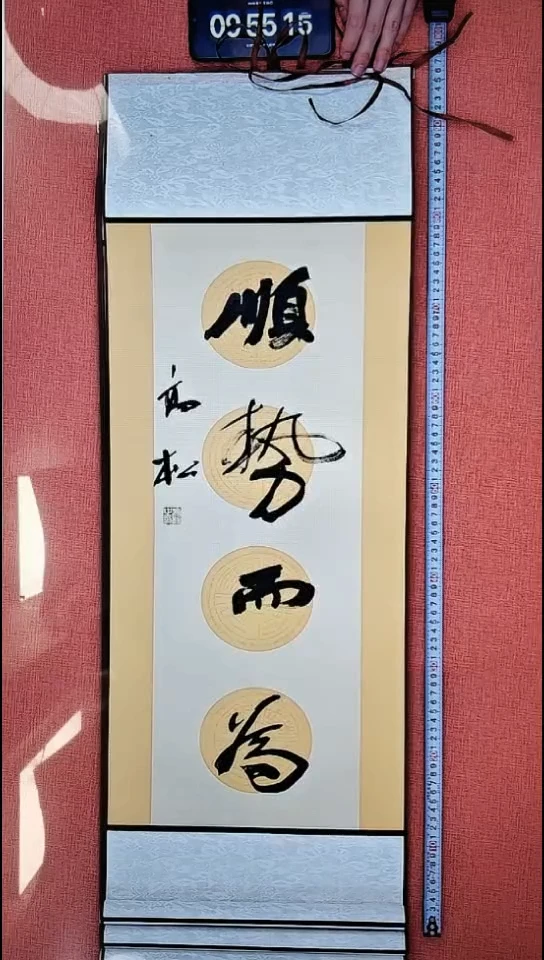 09:55 15
順勢而為
高松